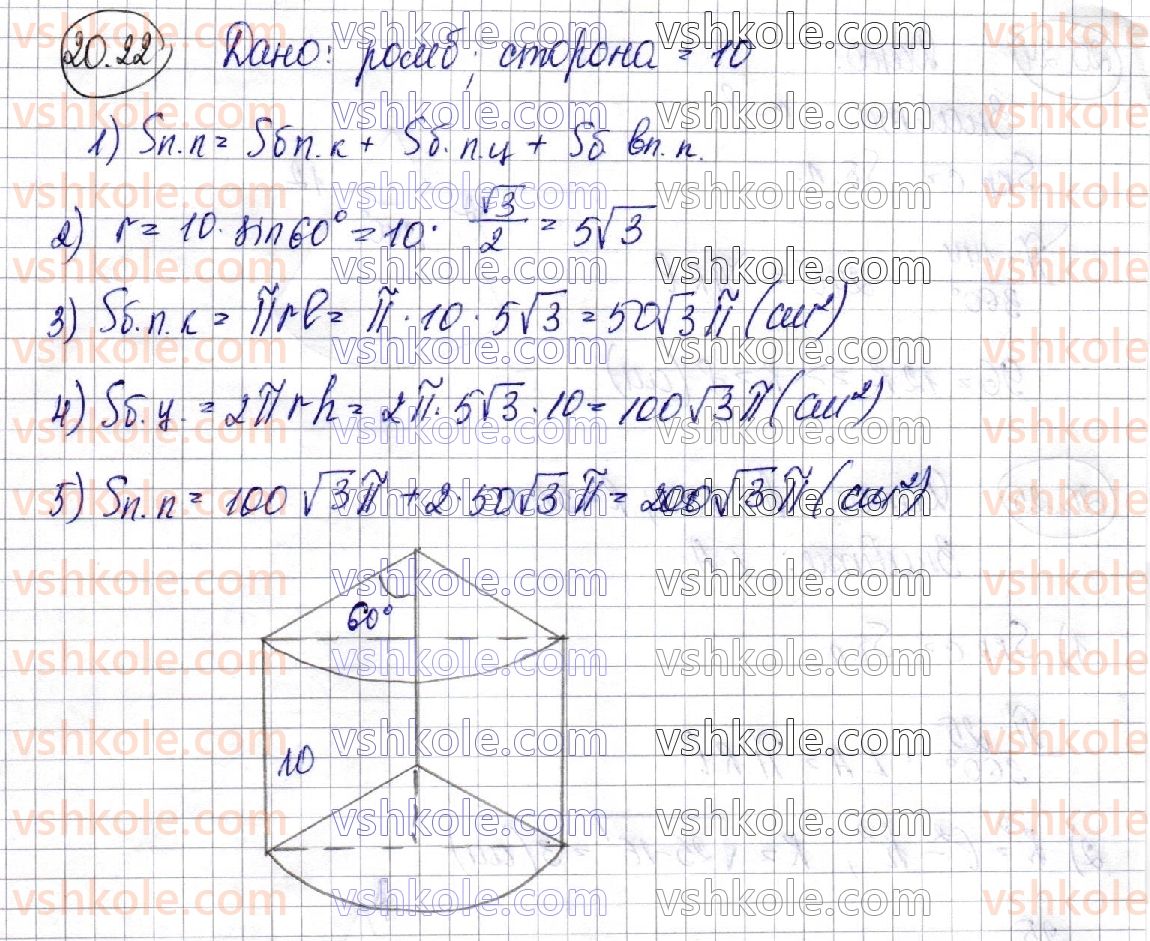 20.22 Дано: ромб, сторона = 10
1) Sп.п = Sбп.к + Sб.п.ц + Sб вп.п.
2) r = 10 · sin60° = 10 · √3/2 = 5√3
3) Sб.п.к = πrl = π · 10 · 5√3 = 50√3π (см²)
4) Sб.ц. = 2πrh = 2π · 5√3 · 10 = 100√3π (см²)
5) Sп.п = 100√3π + 2·50√3π = 200√3π (см²)
60°
10
vshkole.com